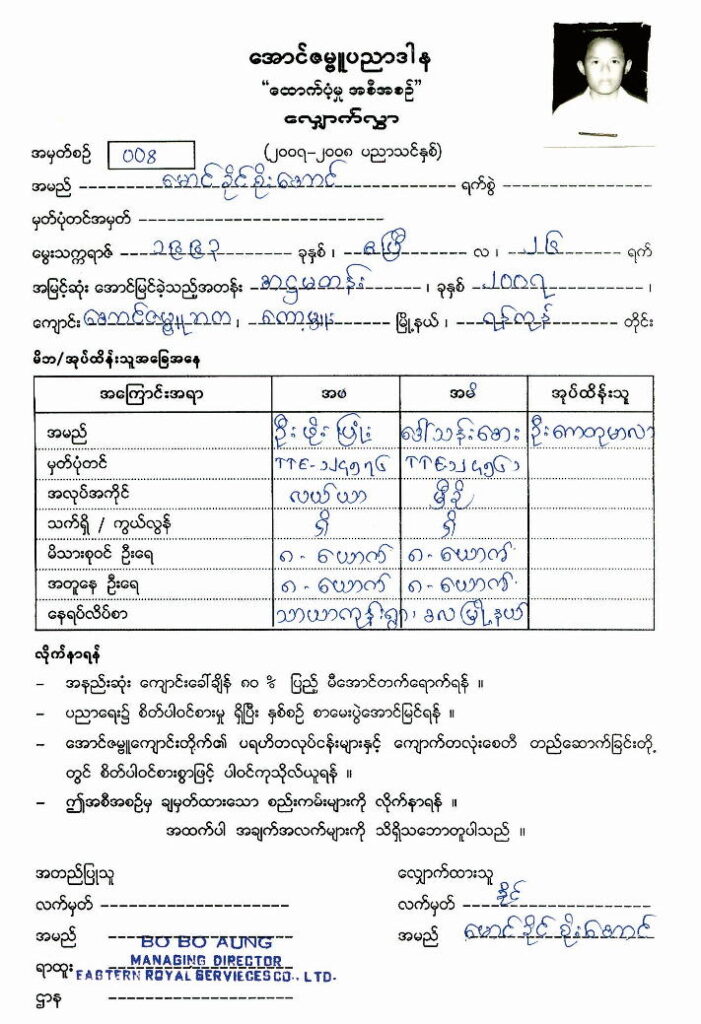 အောင်ဇမ္ဗူပညာဒါန
“ထောက်ပံ့မှု အစီအစဉ်”
လျှောက်လွှာ
အမှတ်စဉ် 008 (၂၀၀၇-၂၀၀၈ ပညာသင်နှစ်)
အမည် မောင်ခိုင်စိုးအောင် ရက်စွဲ
မှတ်ပုံတင်အမှတ်
မွေးသက္ကရာဇ် ၁၉၉၃ ခုနှစ် ၊ ဧပြီ လ ၊ ၂၄ ရက်
အမြင့်ဆုံး အောင်မြင်ခဲ့သည့်အတန်း အဋ္ဌမတန်း ၊ ခုနှစ် ၂၀၀၇ ၊
ကျောင်း အောင်ဇမ္ဗူ ဘက ၊ ကော့မှူး မြို့နယ် ၊ ရန်ကုန် တိုင်း
မိဘ/အုပ်ထိန်းသူအခြေအနေ
အကြောင်းအရာ အဖ အမိ အုပ်ထိန်းသူ
အမည် ဦးဖိုးပြုံး ဒေါ်သန်းအေး ဦးကေတုမာလာ
မှတ်ပုံတင် TTE- TTE-
အလုပ်အကိုင် လယ်ယာ မှီခို
သက်ရှိ / ကွယ်လွန် ရှိ ရှိ
မိသားစုဝင် ဦးရေ ၈ - ယောက် ၈ - ယောက်
အတူနေ ဦးရေ ၈ - ယောက် ၈ - ယောက်
နေရပ်လိပ်စာ သာယာကုန်းရွာ၊ ဒလမြို့နယ်
လိုက်နာရန်
– အနည်းဆုံး ကျောင်းခေါ်ချိန် ၈၀ % ပြည့် မီအောင်တက်ရောက်ရန် ။
– ပညာရေး၌ စိတ်ပါဝင်စားမှု ရှိပြီး နှစ်စဉ် စာမေးပွဲအောင်မြင်ရန် ။
– အောင်ဇမ္ဗူကျောင်းတိုက်၏ ပရဟိတလုပ်ငန်းများနှင့် ကျောက်တလုံးစေတီ တည်ဆောက်ခြင်းတို့
တွင် စိတ်ပါဝင်စားစွာဖြင့် ပါဝင်ကုသိုလ်ယူရန် ။
– ဤအစီအစဉ်မှ ချမှတ်ထားသော စည်းကမ်းများကို လိုက်နာရန် ။
အထက်ပါ အချက်အလက်များကို သိရှိသဘောတူပါသည် ။
အတည်ပြုသူ လျှောက်ထားသူ
လက်မှတ် လက်မှတ် ခိုင်
အမည် BO BO AUNG အမည် မောင်ခိုင်စိုးအောင်
MANAGING DIRECTOR
ရာထူး EASTERN ROYAL SERVIECES CO., LTD.
ဌာန